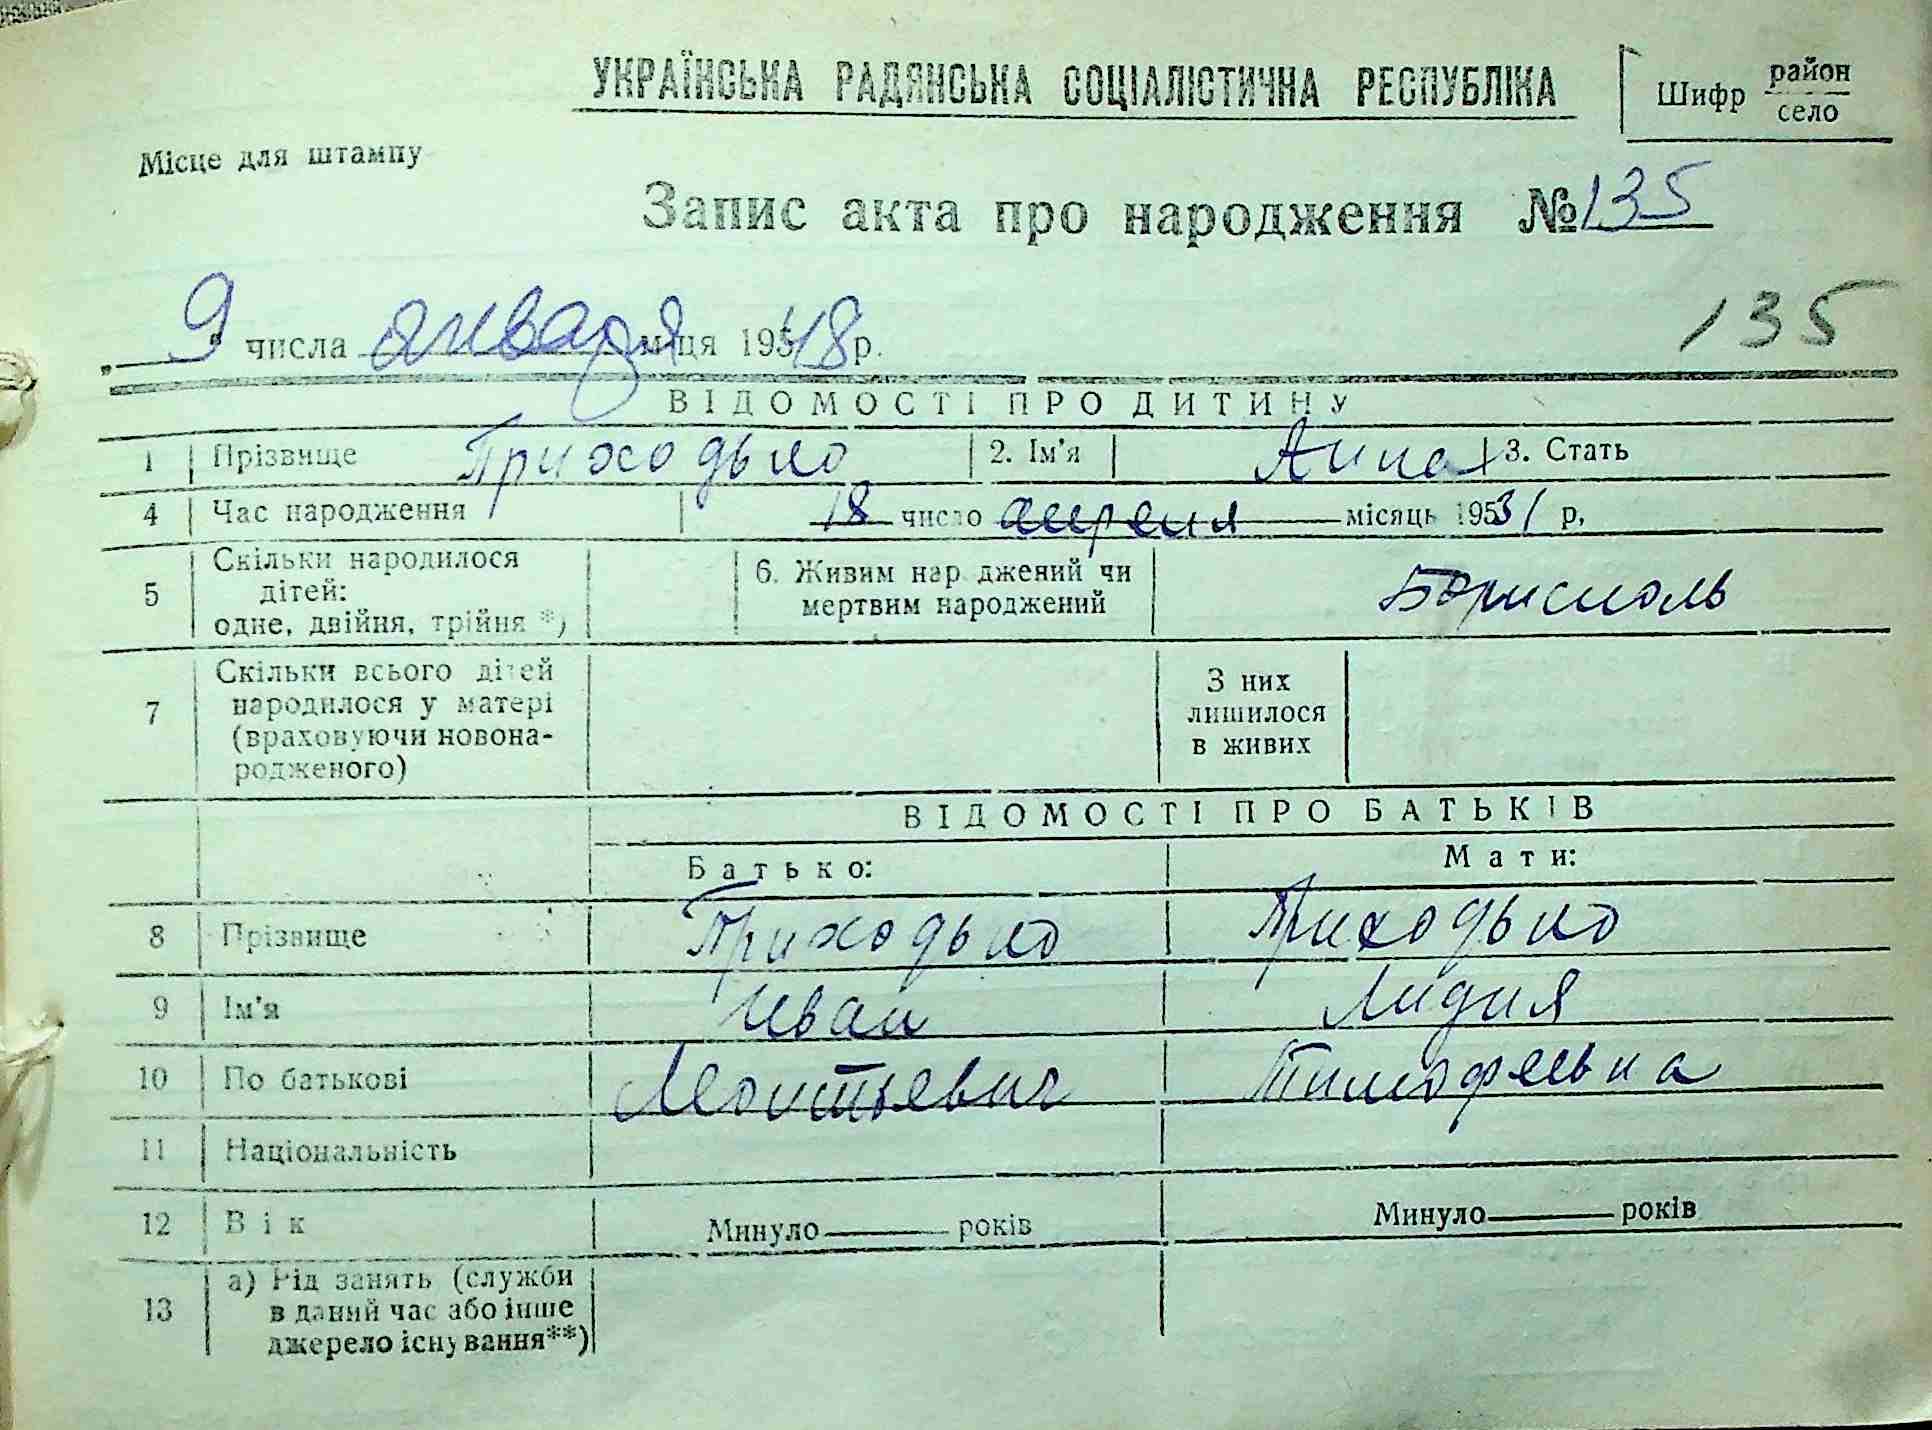 УКРАЇНСЬКА РАДЯНСЬКА СОЦІАЛІСТИЧНА РЕСПУБЛІКА
Шифр район
село
Місце для штампу
Запис акта про народження № 135
135
„ 9 " числа января м-ця 195 48 р.
ВІДОМОСТІ ПРО ДИТИНУ
1 Прізвище Приходько 2. Ім'я Анна 3. Стать
4 Час народження 18 число апреля місяць 195 31 р,
5 Скільки народилося дітей: одне, двійня, трійня *) 6. Живим нар джений чи мертвим народжений Борисполь
7 Скільки всього дітей народилося у матері (враховуючи новона-родженого) З них лишилося в живих
ВІДОМОСТІ ПРО БАТЬКІВ
Батько: Мати:
8 Прізвище Приходько Приходько
9 Ім'я Иван Лидия
10 По батькові Леонтьевич Тимофеевна
11 Національність
12 Вік Минуло років Минуло років
13 а) Рід занять (служби в даний час або інше джерело існування**)